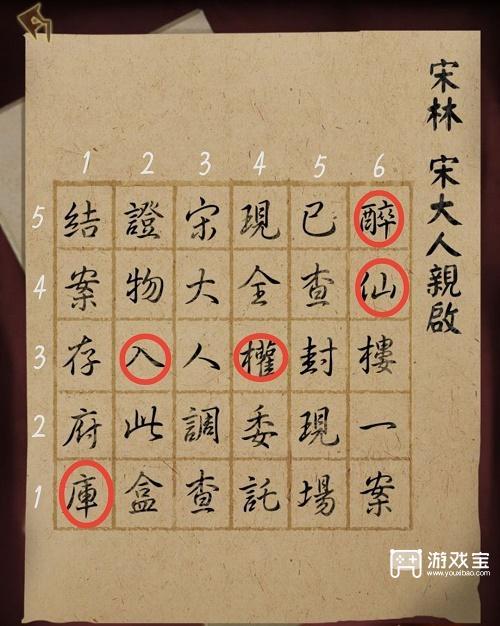 宋林 宋大人親啟
1 2 3 4 5 6
醉仙樓一案
已查封現場
現全權委託
宋大人調查
證物入此盒
結案存府庫
5
4
3
2
1
游戏宝
www.youxibao.com